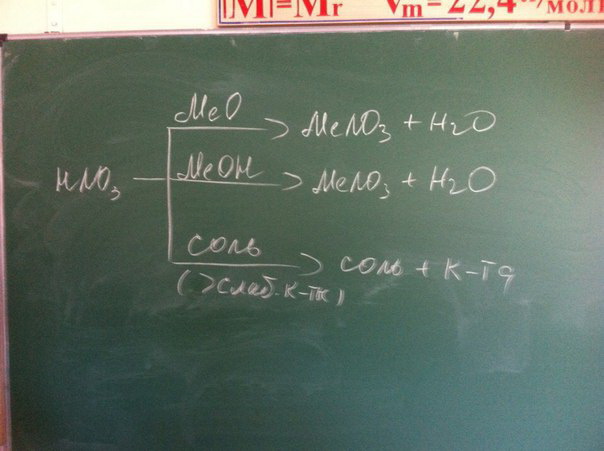 |M|=Mr Vm=22,4 л/моль
MeO
MeNO3 + H2O
HNO3
MeOH
MeNO3 + H2O
соль
соль + к-та
(>слаб. к-ты)